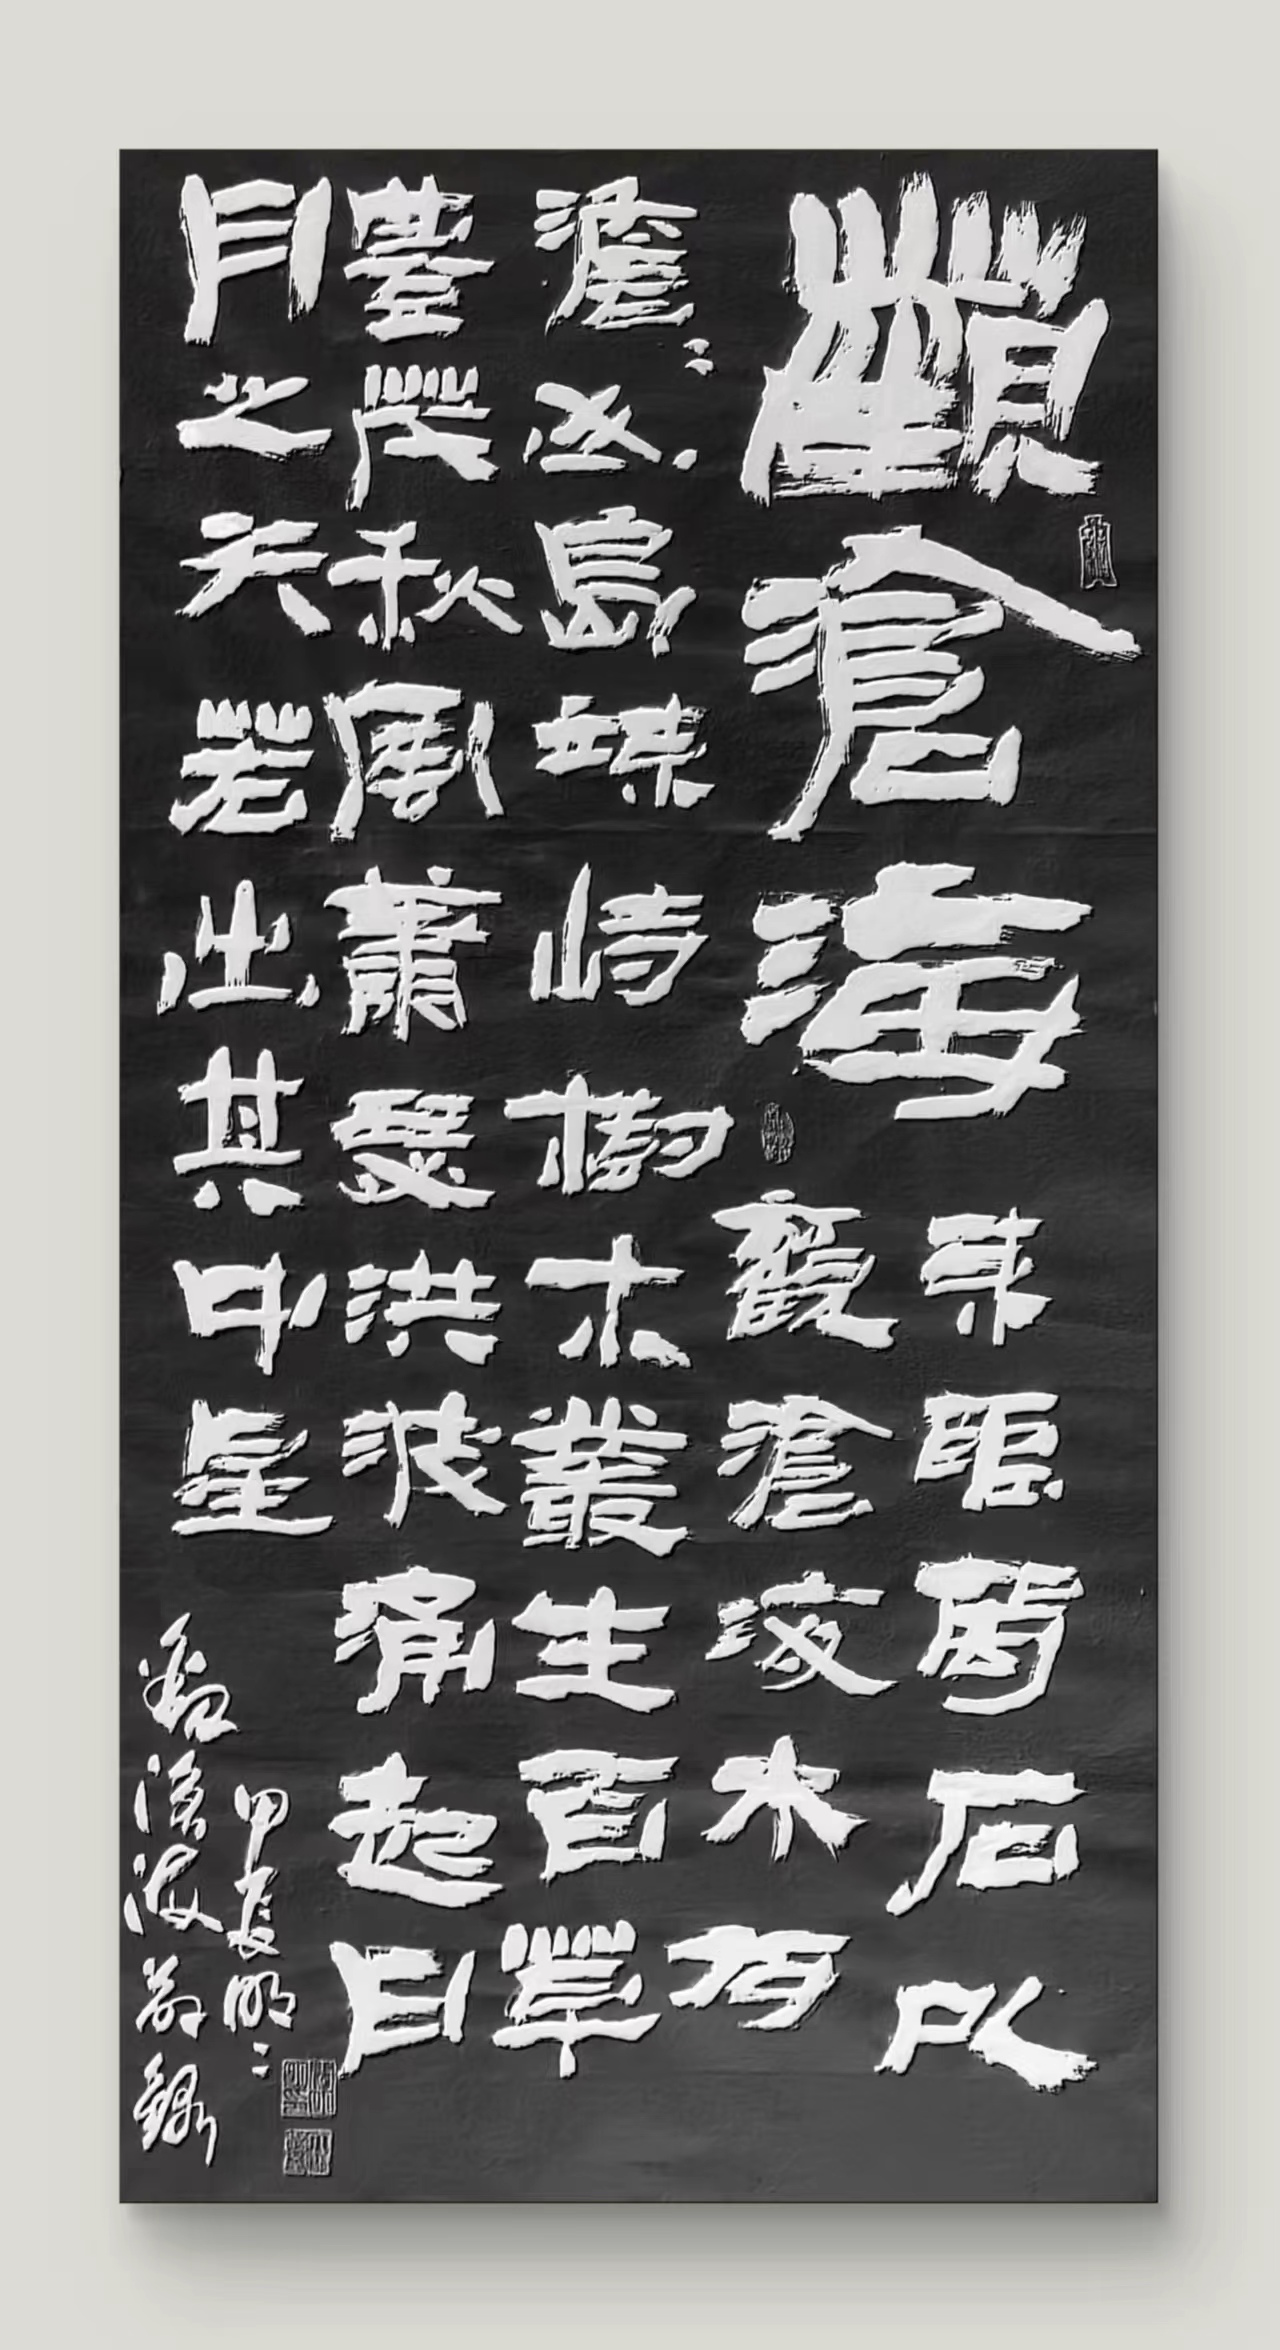 觀滄海
東臨碣石以
觀滄海水何
澹〻山島竦峙樹木叢生百草
豐茂秋風蕭瑟洪波涌起日
月之若出其中星
觀滄海節錄
甲辰明〻